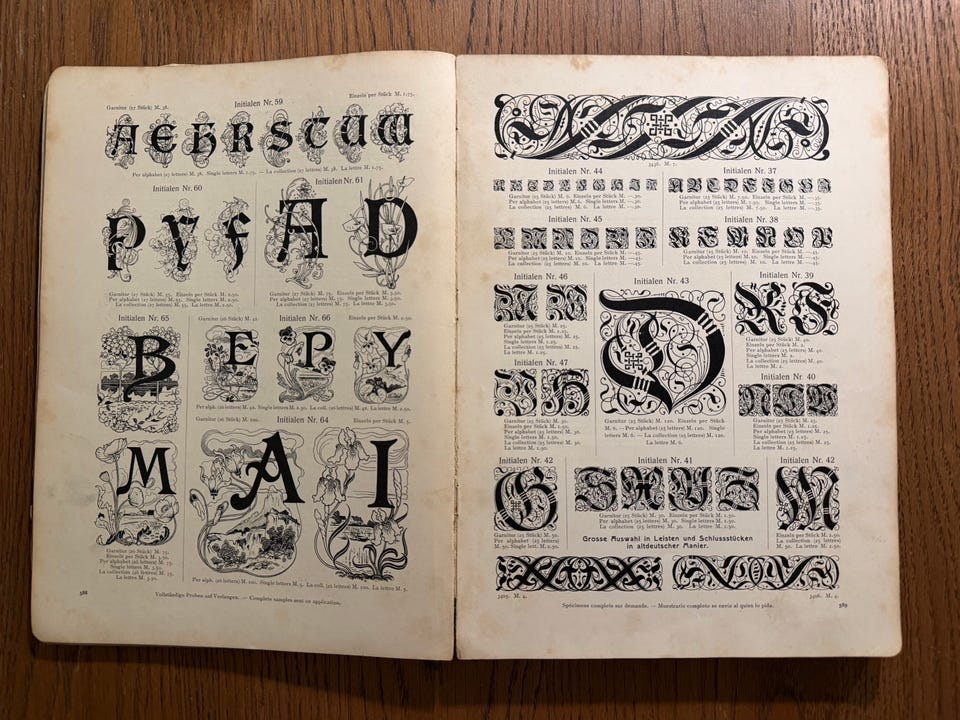 Garnitur (27 Stück) M. 38.
Initialen Nr. 59
Einzeln per Stück M. 1.75.
A E H R S T U W
Per alphabet (27 letters) M. 38. Single letters M. 1.75. — La collection (27 lettres) M. 38. La lettre M. 1.75.
Initialen Nr. 60
P Y F
Garnitur (27 Stück) M. 55. Einzeln per Stück M. 2.50.
Per alphabet (27 letters) M. 55. Single letters M. 2.50.
La collection (27 lettres) M. 55. La lettre M. 2.50.
Initialen Nr. 61
A D
Garnitur (27 Stück) M. 75. Einzeln per Stück M. 3.50.
Per alphabet (27 letters) M. 75. Single letters M. 3.50.
La collection (27 lettres) M. 75. La lettre M. 3.50.
Initialen Nr. 65
B
M
Garnitur (26 Stück) M. 75.
Einzeln per Stück M. 3.50.
Per alphabet (26 letters) M. 75.
Single letters M. 3.50.
La collection (26 lettres) M. 75.
La lettre M. 3.50.
Garnitur (26 Stück) M. 42.
Initialen Nr. 66
Einzeln per Stück M. 2.50.
E P Y
Per alph. (26 letters) M. 42. Single letters M. 2.50. La coll. (26 lettres) M. 42. La lettre M. 2.50.
Garnitur (26 Stück) M. 100.
Initialen Nr. 64
Einzeln per Stück M. 5.
A I
Per alph. (26 letters) M. 100. Single letters M. 5. La coll. (26 lettres) M. 100. La lettre M. 5.
588
Vollständige Proben auf Verlangen. — Complete samples sent on application.
3436. M. 7.
Initialen Nr. 44
Garnitur (25 Stück) M. 6. Einzeln per Stück M. —.30.
Per alphabet (25 letters) M. 6. Single letters M. —.30.
La collection (25 lettres) M. 6. La lettre M. —.30.
Initialen Nr. 37
A B C D E F G H J
Garnitur (25 Stück) M. 7.50. Einzeln per Stück M. —.35.
Per alphabet (25 letters) M. 7.50. Single letters M. —.35.
La collection (25 lettres) M. 7.50. La lettre M. —.35.
Initialen Nr. 45
Garnitur (25 Stück) M. 10. Einzeln per Stück M. —.45.
Per alphabet (25 letters) M. 10. Single letters M. —.45.
La collection (25 lettres) M. 10. La lettre M. —.45.
Initialen Nr. 38
Garnitur (25 Stück) M. 10. Einzeln per Stück M. —.45.
Per alphabet (25 letters) M. 10. Single letters M. —.45.
La collection (25 lettres) M. 10. La lettre M. —.45.
Initialen Nr. 46
Garnitur (25 Stück) M. 25.
Einzeln per Stück M. 1.25.
Per alphabet (25 letters) M. 25.
Single letters M. 1.25.
La collection (25 lettres) M. 25.
La lettre M. 1.25.
Initialen Nr. 47
Garnitur (25 Stück) M. 30.
Einzeln per Stück M. 1.50.
Per alphabet (25 letters) M. 30.
Single letters M. 1.50.
La collection (25 lettres) M. 30.
La lettre M. 1.50.
Initialen Nr. 43
D
Garnitur (25 Stück) M. 120. Einzeln per Stück
M. 6. — Per alphabet (25 letters) M. 120. Single
letters M. 6. — La collection (25 lettres) M. 120.
La lettre M. 6.
Initialen Nr. 39
R F
Garnitur (25 Stück) M. 40.
Einzeln per Stück M. 2.
Per alphabet (25 letters) M. 40.
Single letters M. 2.
La collection (25 lettres) M. 40.
La lettre M. 2.
Initialen Nr. 40
Garnitur (25 Stück) M. 25.
Einzeln per Stück M. 1.25.
Per alphabet (25 letters) M. 25.
Single letters M. 1.25.
La collection (25 lettres) M. 25.
La lettre M. 1.25.
Initialen Nr. 42
G
Garnitur (25 Stück) M. 50.
Einzeln per Stück M. 2.50.
Per alphabet (25 letters) M. 50.
Single lett. M. 2.50.
Initialen Nr. 41
Garnitur (25 Stück) M. 30. Einzeln per Stück M. 1.50.
Per alphabet (25 letters) M. 30. Single letters M. 1.50.
La collection (25 lettres) M. 30. La lettre M. 1.50.
Grosse Auswahl in Leisten und Schlussstücken
in altdeutscher Manier.
Initialen Nr. 42
M
Einzeln per Stück M. 2.50.
La collection (25 lettres)
M. 50. La lettre M. 2.50.
3405. M. 4.
3406. M. 4.
Spécimens complets sur demande. — Muestrario completo se envia al quien lo pida.
589